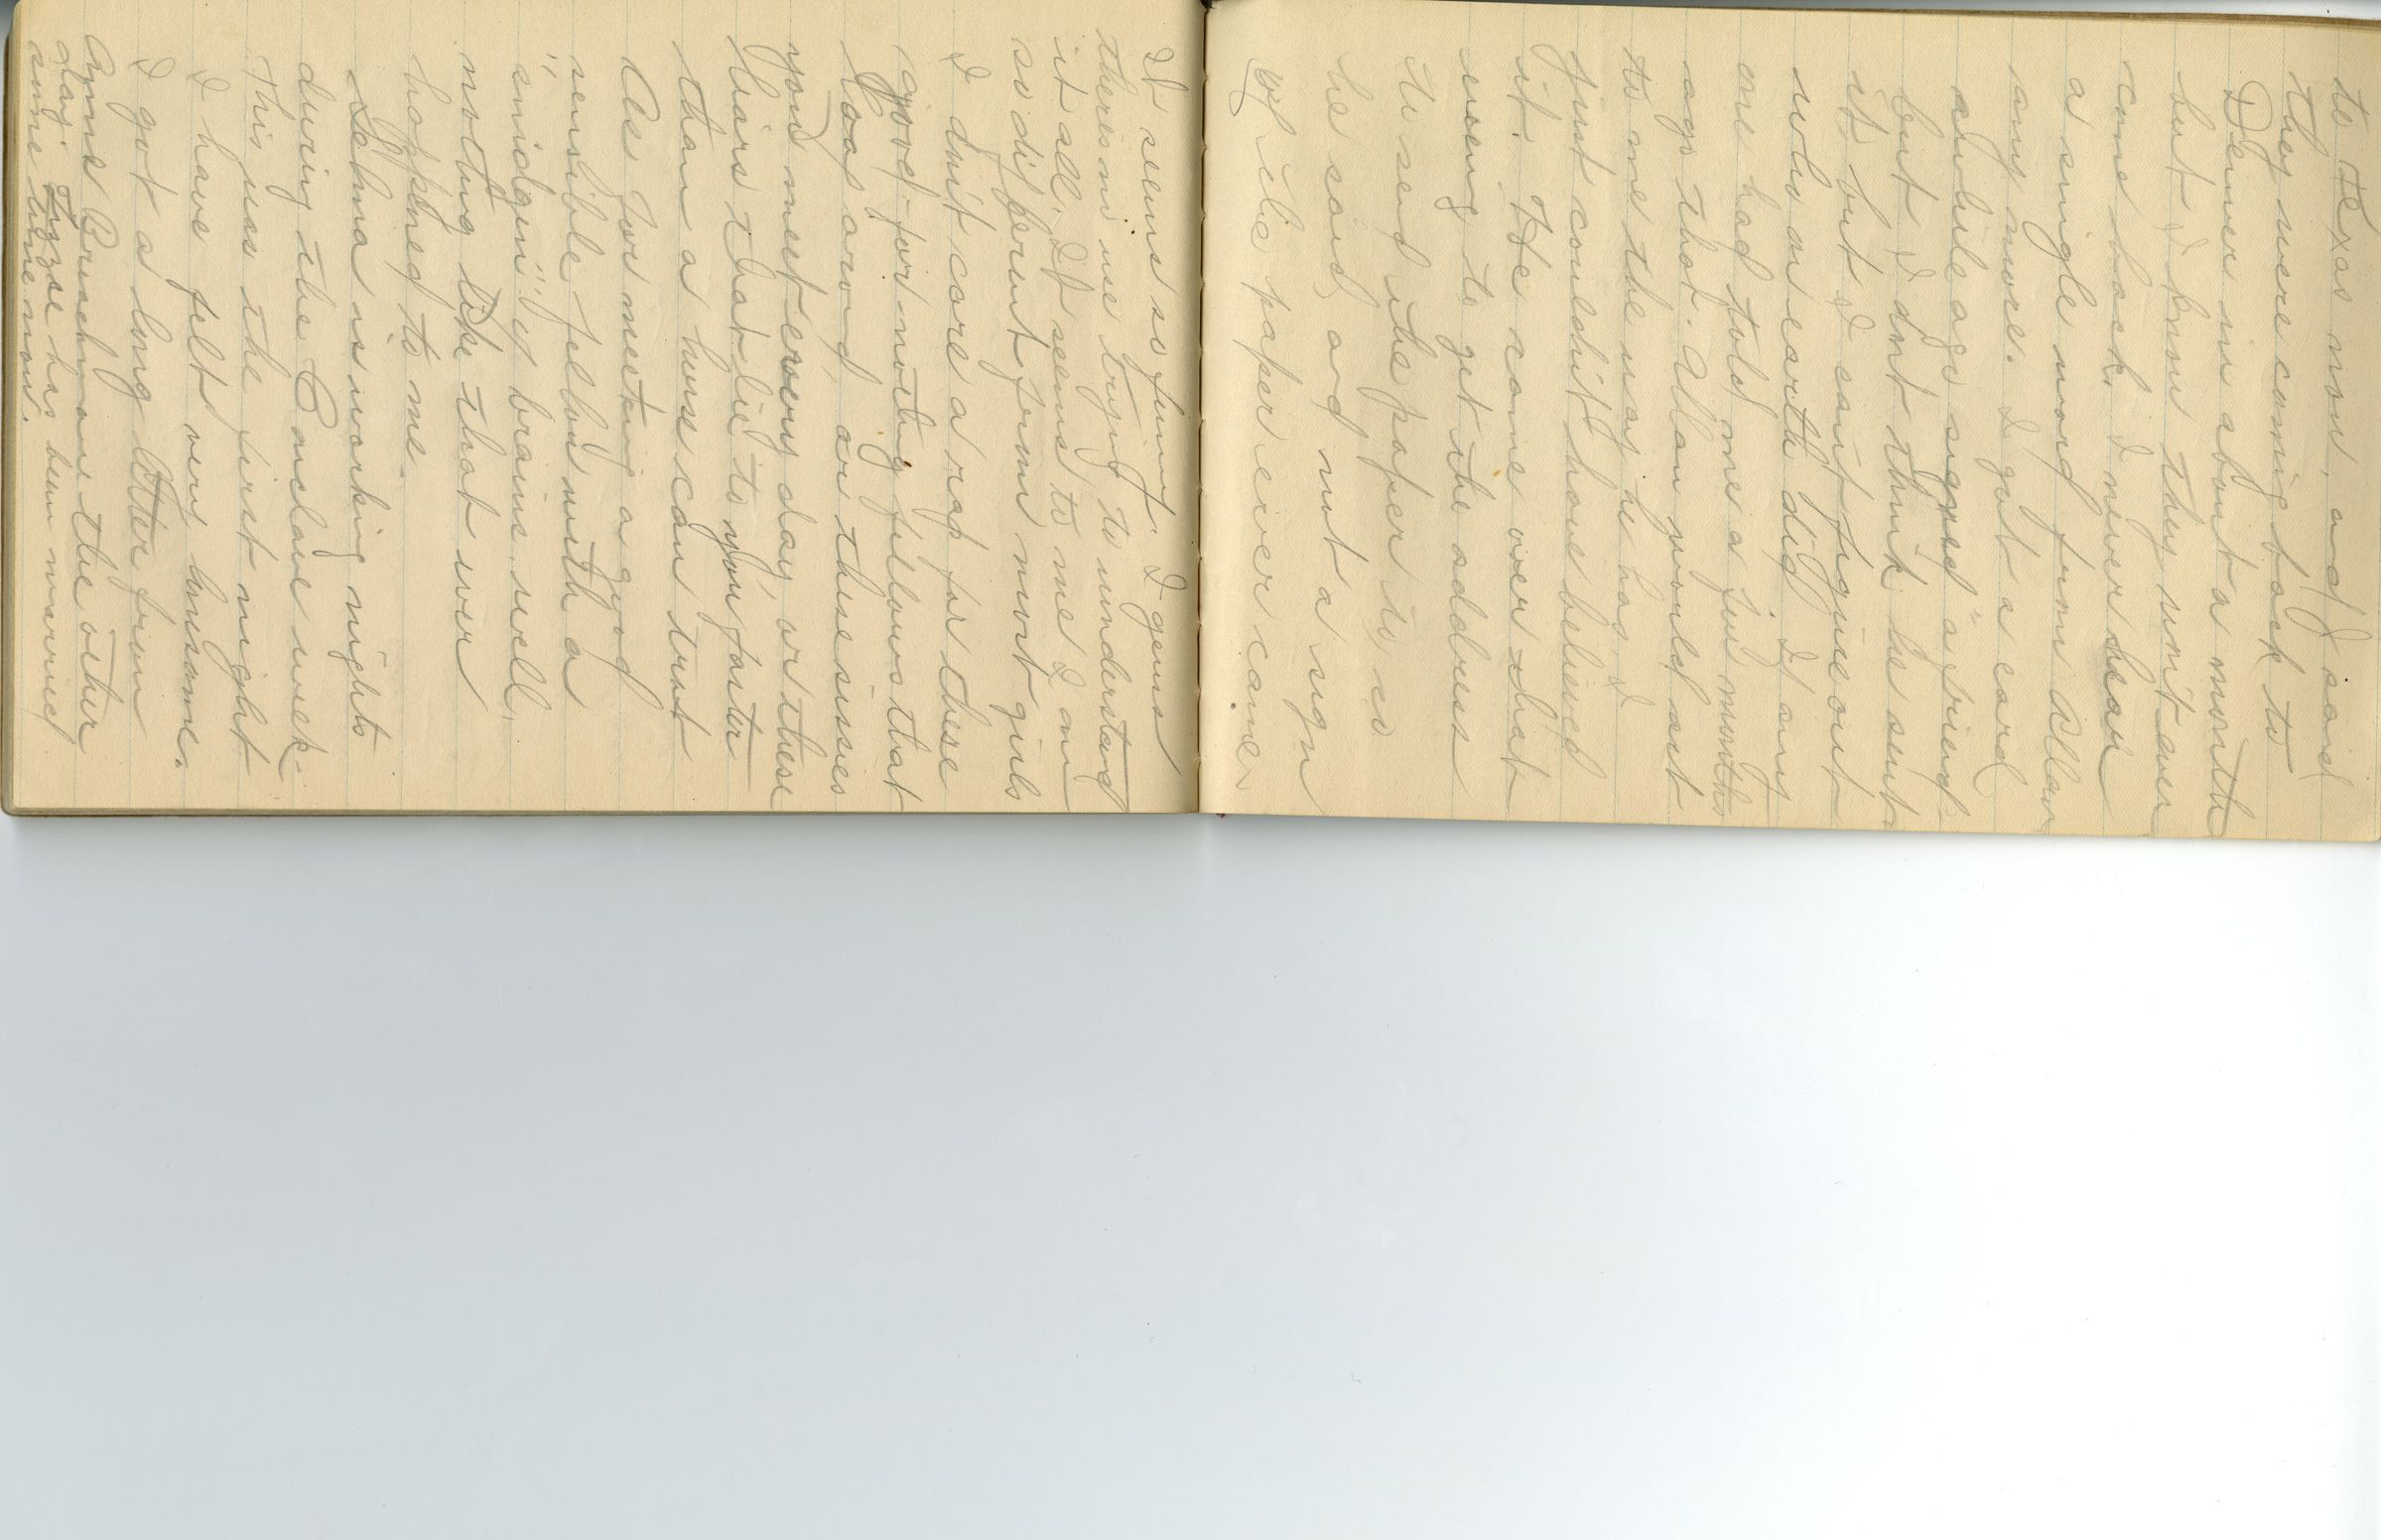 to Texas now, and I said
they were coming back to
Denver in about a month
but I know they wont ever
come back, I never hear
a single word from Allan
any more. I got a card
awhile ago signed "a friend"
but I dont think he sent
it but I cant figure out
who on earth did. If any
one had told me a few months
ago that Allan would act
to me the way he has, I
just couldn't have believed
it. He came over that
eveng to get the address
to send the paper to so
he said and not a sign
of the paper ever came.
It seems so funny. I guess
theres no use trying to understand
it all. It seems to me I am
so different from most girls
I don't care a rap for these
good-for-nothing fellows that
loaf around, or these sissies
you meet every day, or these
liars that lie to you faster
than a horse can trot
As for meeting a good
sensible fellow with a
"smidgin" of brains, well,
nothing like that ever
happened to me.
Selma is working nights
during the Conclave week-
This was the first night
I have felt very lonesome.
I got a long letter from
Anna Bruschman the other
day. Lizzie has been married
some time now.